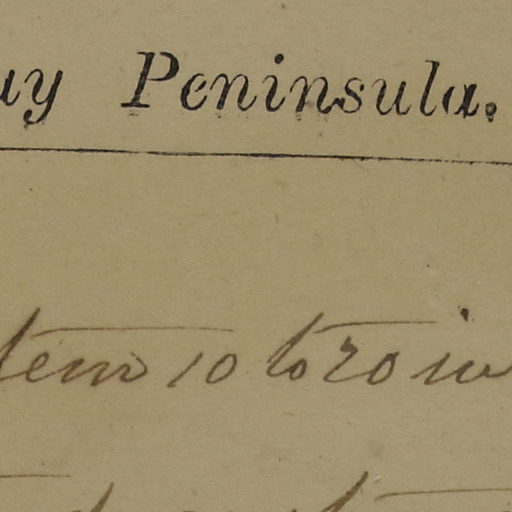 ay Peninsula.
tem 10 to 20 in